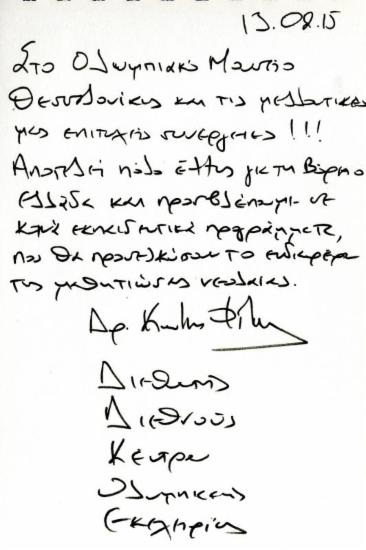 13.02.15
Στο Ολυμπιακό Μουσείο
Θεσσαλονίκης και τις μελλοντικές
μας επιτυχείς συνέργειες !!!
Αποτελεί πόλο έλξης για τη Βόρειο
Ελλάδα και προσβλέπουμε σε
κοινά εκπαιδευτικά προγράμματα,
που θα προσελκύσουν το ενδιαφέρον
της μαθητιώσας νεολαίας.
Δρ. Κωνσ
Διευθυντής
Διεθνούς
Κέντρου
Ολυμπιακής
Εκεχειρίας